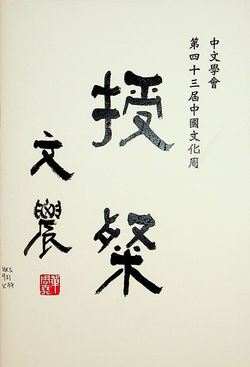 中文學會
第四十三屆中國文化周
授粲
文農
HKS